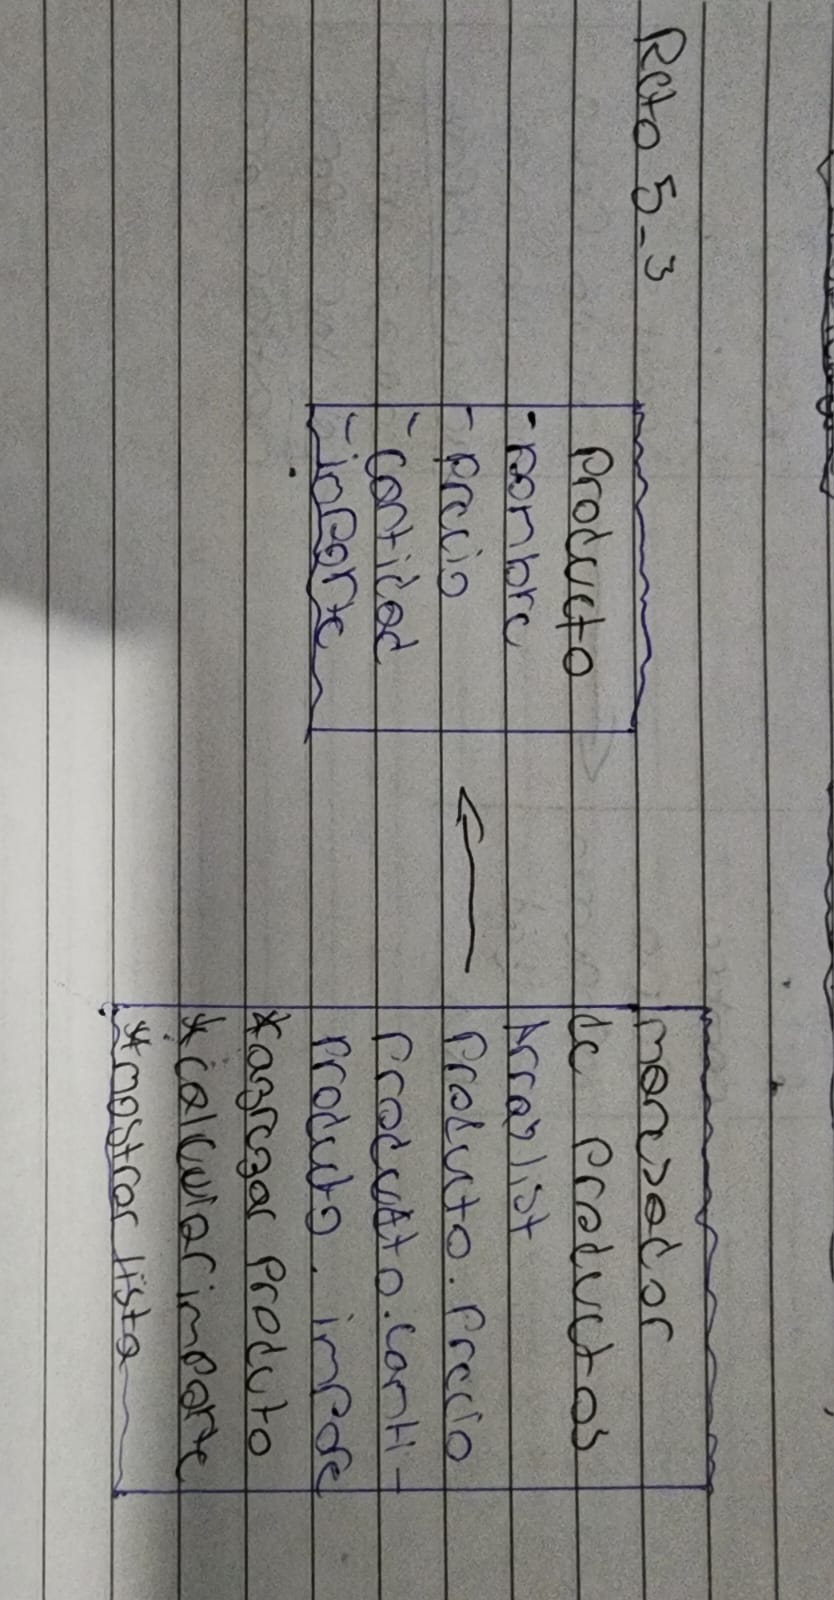 Reto 5-3
Producto
- nombre
- Precio
- Cantidad
- inPorte
manejador
de Productos
Arraylist
Producto.Precio
Producto.Canti-
Producto.imPore
*agregar Producto
*Calcular imPorte
*mostrar lista